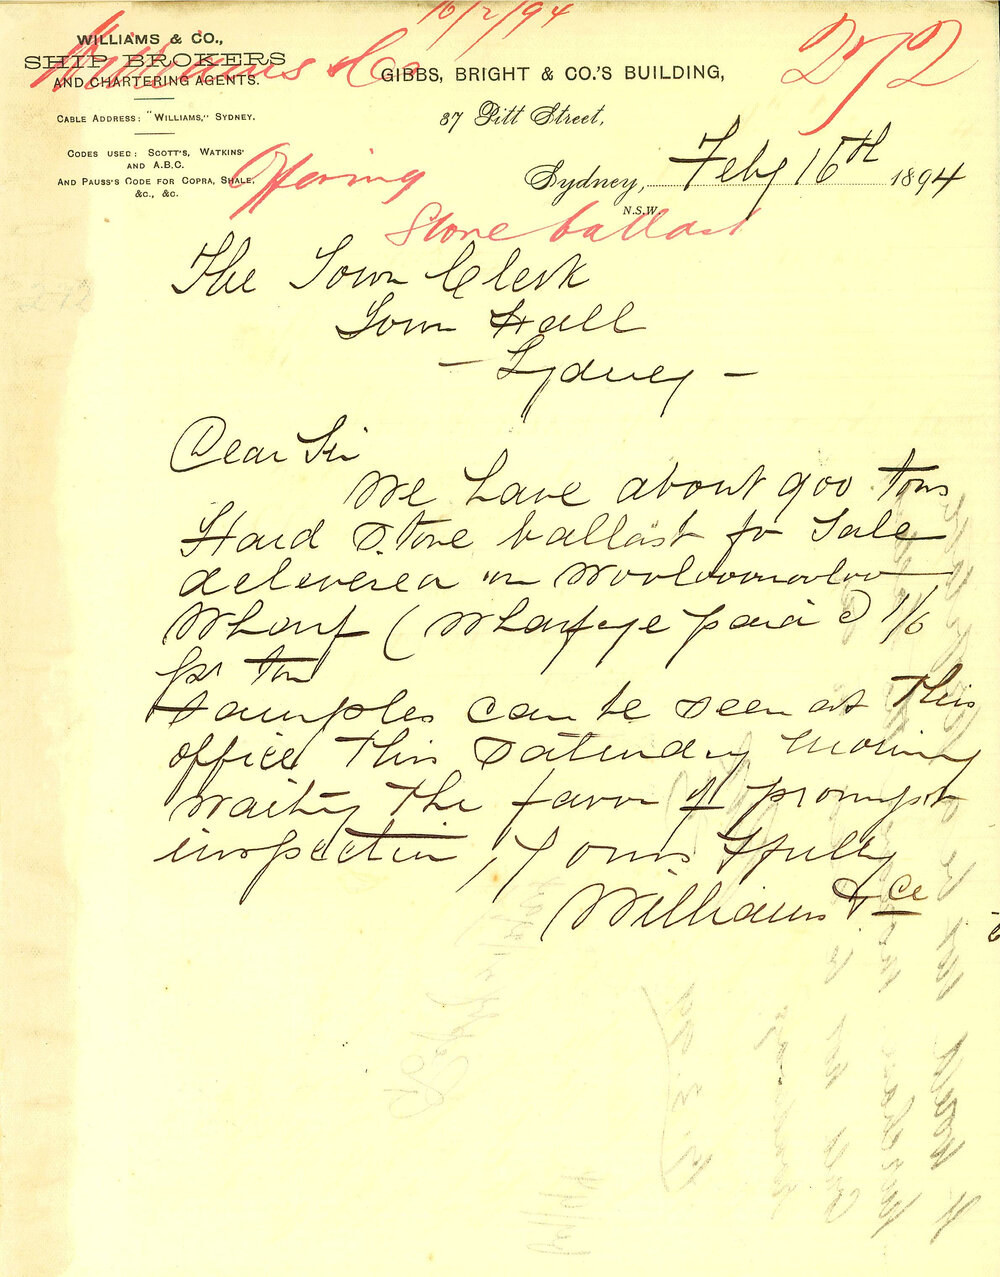 16/2/94
272
WILLIAMS & CO.,
SHIP BROKERS
AND CHARTERING AGENTS.
Williams & Co
GIBBS, BRIGHT & CO.'S BUILDING,
37 Pitt Street,
CABLE ADDRESS: "WILLIAMS," SYDNEY.
CODES USED: SCOTT'S, WATKINS'
AND A.B.C.
AND PAUSS'S CODE FOR COPRA, SHALE,
&c., &c.
Sydney, Feby 16th 1894
N.S.W.
Offering
Stone ballast
272
The Town Clerk
Town Hall
- Sydney -
Dear Sir
We have about 900 tons
Hard Stone ballast for Sale
delivered on Woolloomooloo
Wharf (Wharfage paid) 1/6
pr ton
Samples can be seen at this
office this Saturday morning
Waiting the favor of prompt
inspection, Yours ffully
Williams & Co